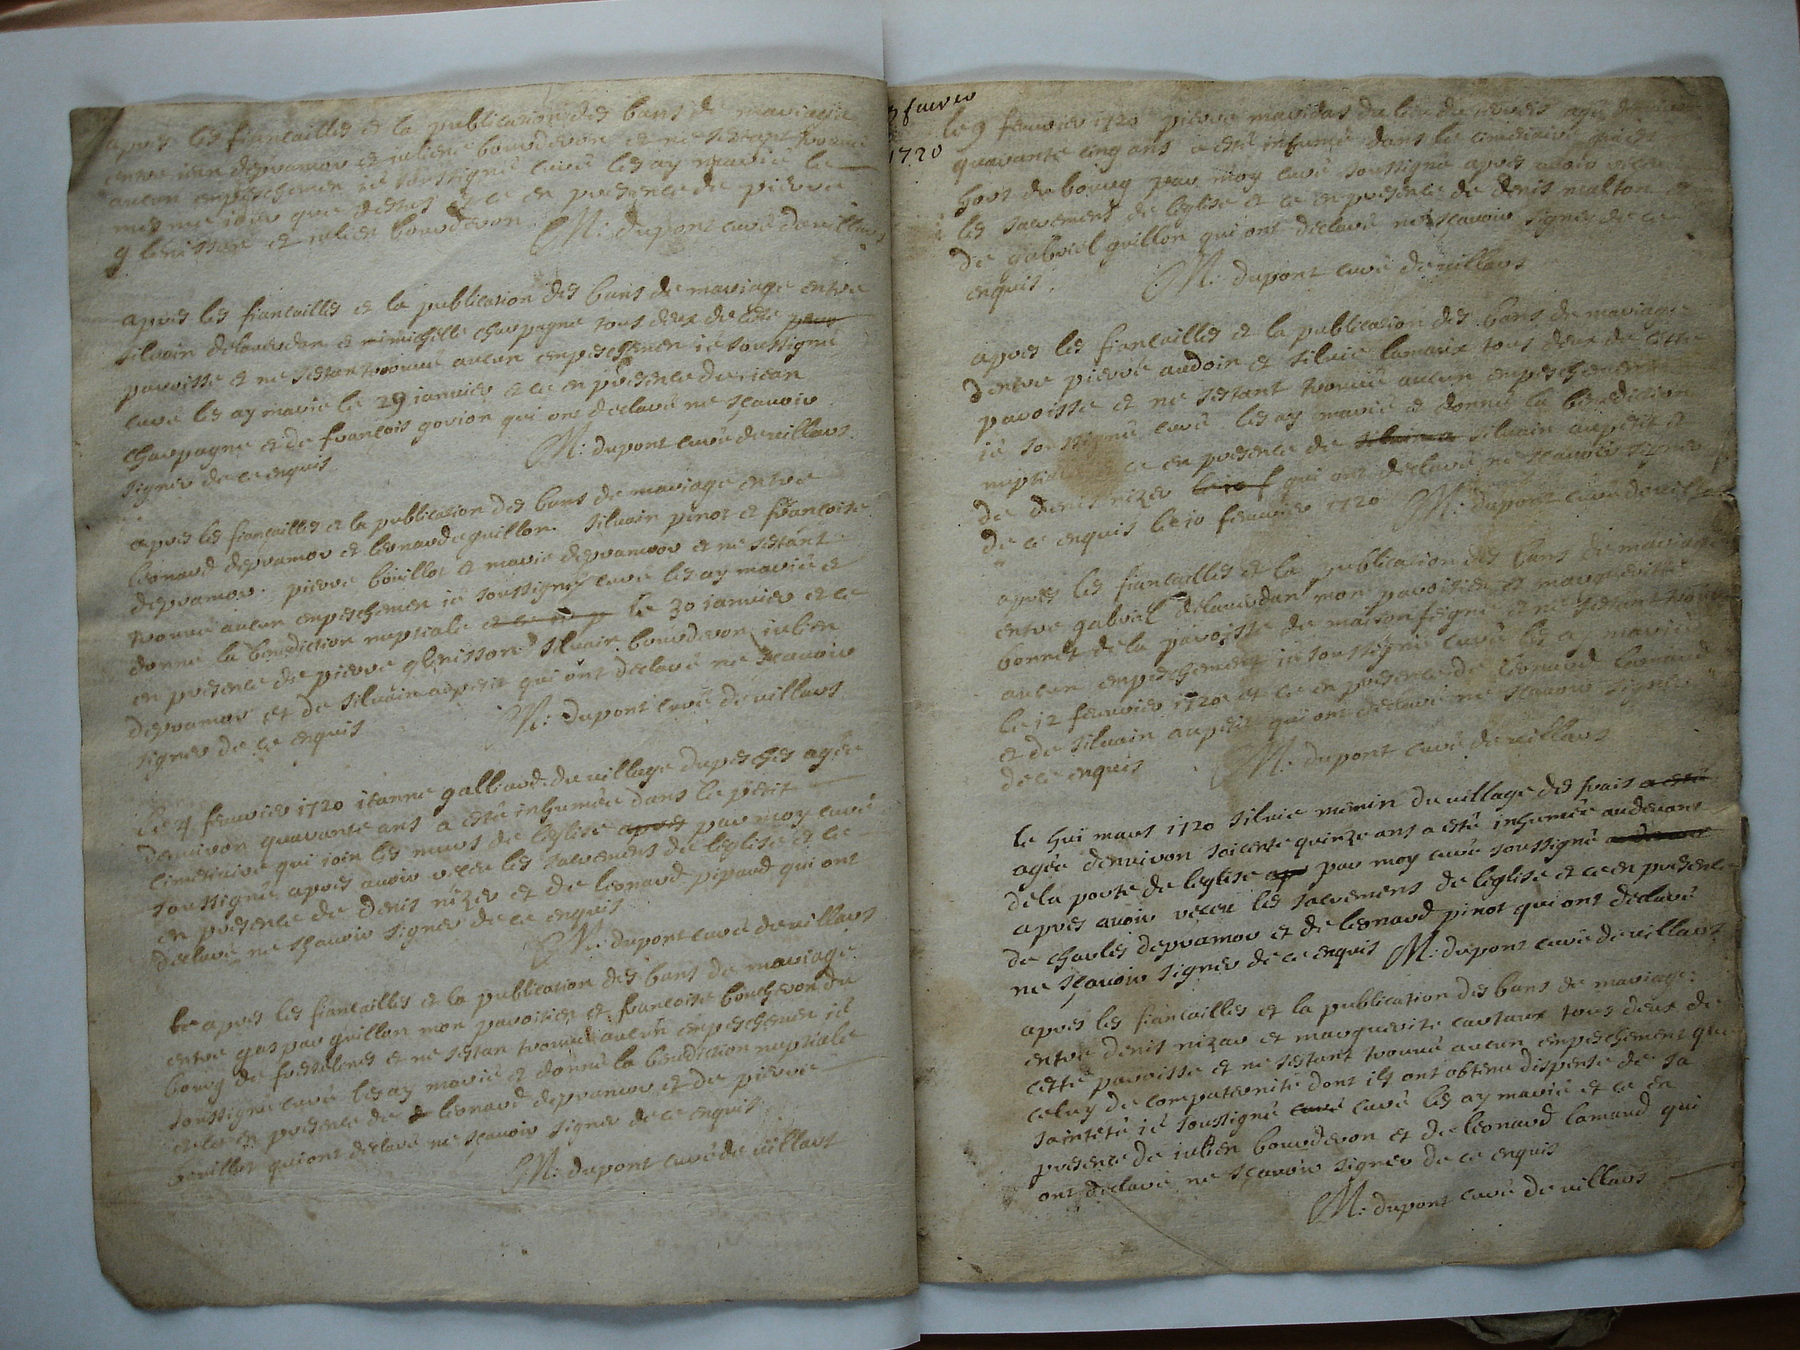 apres les fiancailles et la publication des bans de mariage
entre iean depramor et iuliene bourderon et ne sestant trouué
aucun empeschemen ie soussigné curé les ay marié le
mesme iour que dessus et ce en presence de pierre
glenisson et iulien bourderon. M: dupont curé de villars
apres les fiancailles et la publication des bans de mariage entre
siluain delauerdan et michelle chapagne tous deux de cete
paroisse et ne sestan trouué aucun empeschemen ie soussigné
curé les ay marié le 29 ianuier et ce en presence de iean
chapagne et de francois gorion qui ont declaré ne scauoir
signer de ce enquis
M: dupont curé de villars
apres les fiancailles et la publication des bans de mariage entre
leonard depramor et leonarde guillon. siluain pinot et francoise
depramor. pierre bouillot et marie depramor et ne sestant
trouué aucun empeschemen ie soussigné curé les ay mariés et
donné la benediction nuptiale le 30 ianuier et ce
en presence de pierre glenisson siluain bourderon iulien
depramor et de siluain aupetit qui ont declaré ne scauoir
signer de ce enquis M: dupont curé de villars
Le 4 feurier 1720 ieanne galliard du village dupesches agée
denuiron quarante ans a esté inhumée dans le petit
cimetiere qui join les murs de leglise apres par moy curé
soussigné apres auoir receu les sacremens de leglise et ce
en presence de denis nizer et de leonard pipard qui ont
declaré ne scauoir signer de ce enquis
M: dupont curé de villars
le apres les fiancailles et la publication des bans de mariage
entre gaspar guillon mon paroisien et francoise boucheron du
bourg de fresselines et ne sestan trouué aucun empeschemen ie
soussigné curé les ay mariés et donné la benediction nuptiale
et ce en presence de leonard depramor et de pierre
bouillot qui ont declaré ne scauoir signer de ce enquis
M: dupont curé de villars
feurier
1720
le 9 feurier 1720 pierre maridas du lieu de agé de
quarante cinq ans a esté inhumé dans le cimetiere qui est
hors du bourg par moy curé soussigné apres auoir receu
les sacremens de leglise et ce en presence de denis malton et
de gabriel guillon qui ont declaré ne scauoir signer de ce
enquis. M: dupont curé de villars
apres les fiancailles et la publication des bans de mariage
dentre pierre audoin et siluie lamarix tous deux de cette
paroisse et ne sestant trouué aucun empeschement
ie soussigné curé les ay marié et donné la benediction
nuptiale ce en presence de siluain aupetit et
de denis nizer qui ont declaré ne scauoir signer
de ce enquis le 10 feurier 1720 M: dupont curé de villars
apres les fiancailles et la publication des bans de mariage
entre gabriel delauerdan mon paroisien et marguerite
bonnet de la paroisse de maisonfeigne et ne sestant trouué
aucun empeschement ie soussigné curé les ay mariés
le 12 feurier 1720 et ce en presence de leonard
et de siluain aupetit qui ont declaré ne scauoir signer
de ce enquis M: dupont curé de villars
le hui mars 1720 siluie menin du village des frais a esté
agée denuiron soixente quinze ans a esté inhumée audeuant
de la porte de leglise ap par moy curé soussigné
apres auoir receu les sacremens de leglise et ce en presence
de charles depramor et de leonard pinot qui ont declaré
ne scauoir signer de ce enquis M: dupont curé de villars
apres les fiancailles et la publication des bans de mariage
entre denis nizar et marguerite cartaux tous deux de
cette paroisse et ne sestant trouué aucun empeschement que
celuy de compaternité dont ils ont obtenu dispense de sa
sainteté ie soussigné curé curé les ay marié et ce en
presence de iulien bourderon et de leonard lamand qui
ont declaré ne scauoir signer de ce enquis
M: dupont curé de villars